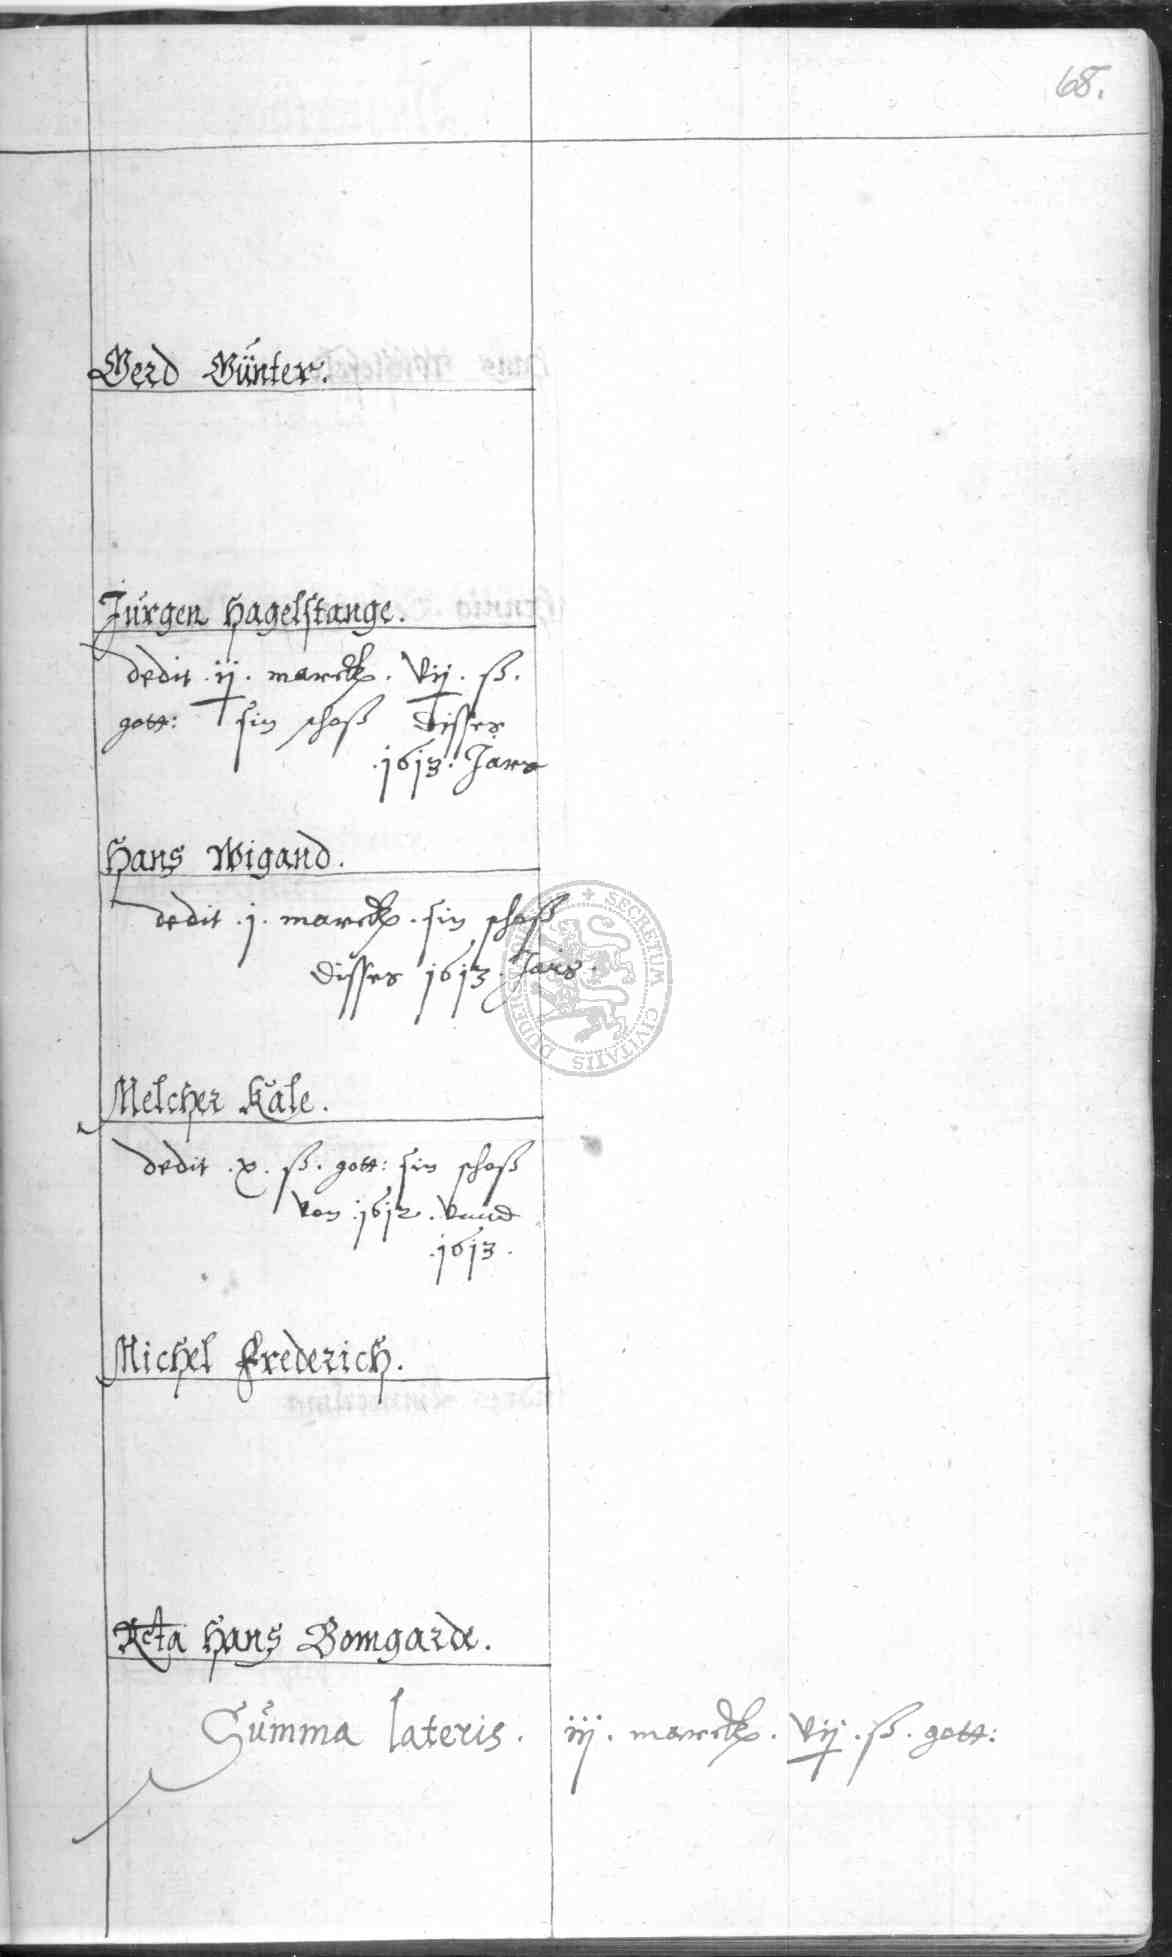 68.
Gerd Günter.
Jürgen Hagelstange.
dedit .ij. marck. vij. ß.
gott: sin schoß disses
.1613. Jars
Hans Wigand.
dedit .j. marck. sin schoß
disses 1613. Jars.
Melcher Kale.
dedit .x. ß. gott: sin schoß
von .1612. vnnd
.1613.
Michel Frederich.
Hans Bomgarde.
Summa lateris. iij. marck. vij. ß. gott:
SECRETUM CIVITATIS